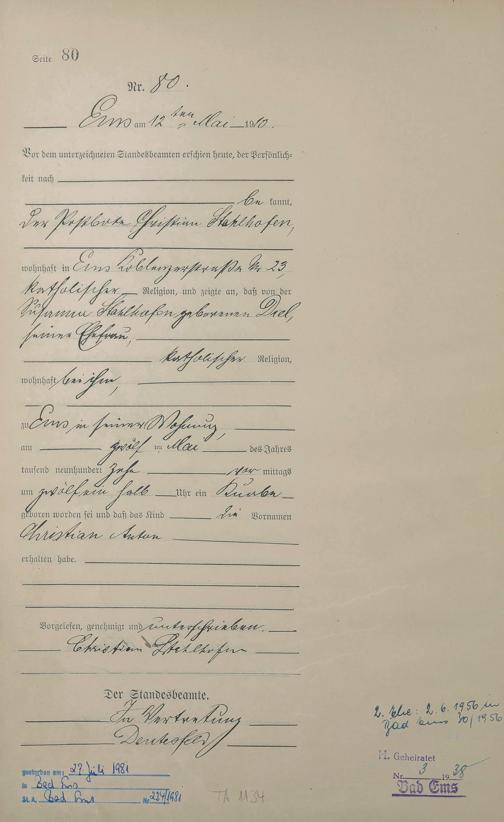 Seite 80
Nr. 80.
Ems am 12ten Mai 1910.
Vor dem unterzeichneten Standesbeamten erschien heute, der Persönlich-
keit nach
be kannt,
der Postbote Christian Stahlhofen,
wohnhaft in Ems Koblenzerstraße Nr 23,
katholischer Religion, und zeigte an, daß von der
Susanna Stahlhofen geborenen Diel,
seiner Ehefrau,
katholischer Religion,
wohnhaft bei ihm,
zu Ems in seiner Wohnung,
am zwölf ten Mai des Jahres
tausend neunhundert zehn vor mittags
um zwölfein halb Uhr ein Knabe
geboren worden sei und daß das Kind die Vornamen
Christian Anton
erhalten habe.
Vorgelesen, genehmigt und unterschrieben.
Christian Stahlhofen
Der Standesbeamte.
In Vertretung
2. Ehe: 2.6.1956 in
Bad Ems 30/1956
H. Geheiratet
Nr. 3 1938
Bad Ems
gestorben am: 27 Juli 1981
in Bad Ems
St. A. Bad Ems Nr 224/1981